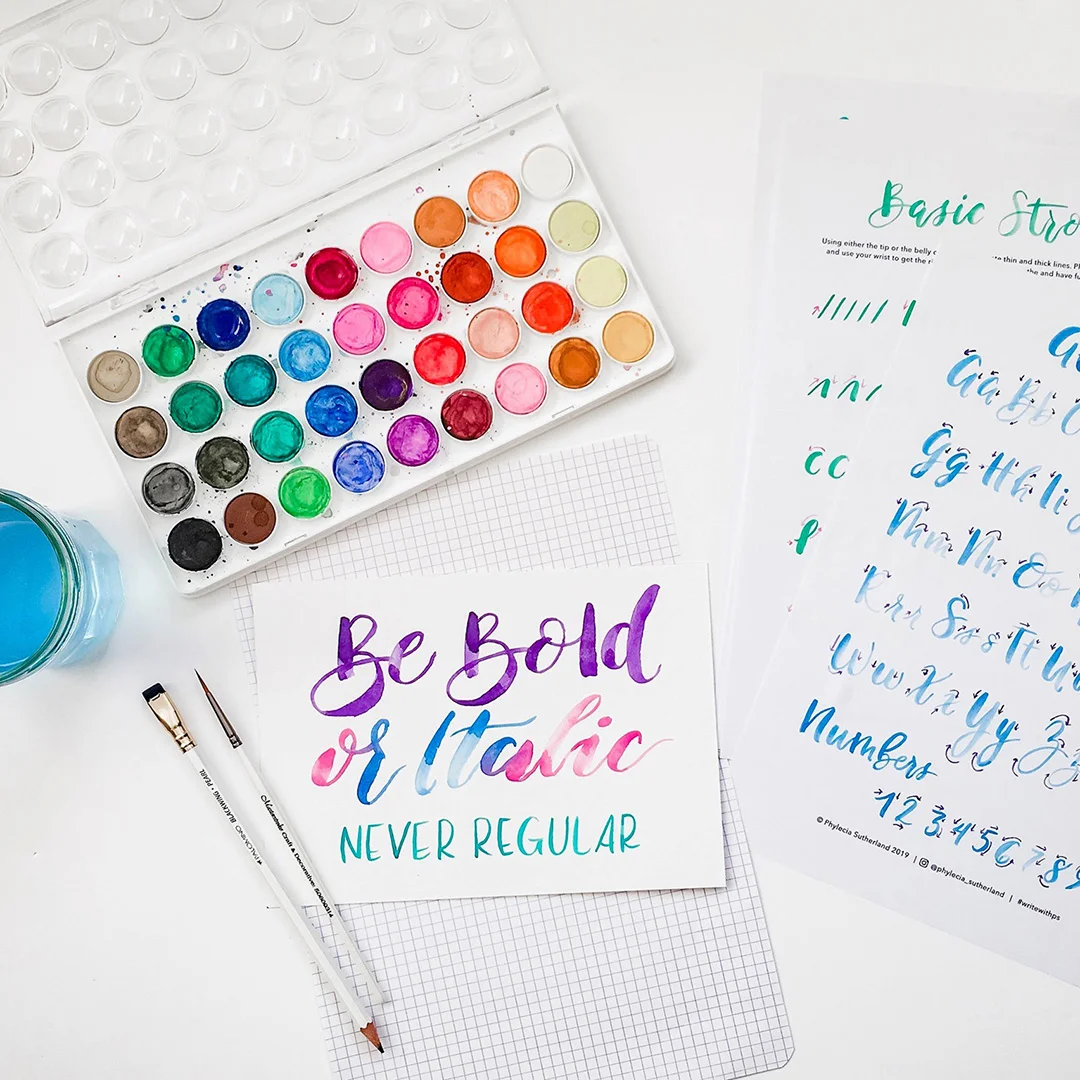 Be Bold
or Italic
NEVER REGULAR
Basic Stro
Using either the tip or the belly o
and use your wrist to get the
thin and thick lines.
and have fu
Aa Bb
Gg Hh Ii
Mm Nn Oo
Rr Ss Tt
Ww Xx Yy Zz
Numbers
1 2 3 4 5 6 7 8 9
© Phylecia Sutherland 2019 | @phylecia_sutherland | #writewithps
PALOMINO BLACKWING • PEARL
Craft & Decorative